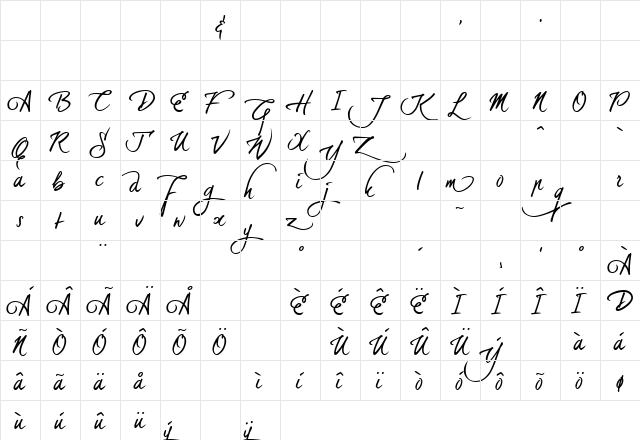 & , .
A B C D E F G H I J K L M N O P
Q R S T U V W X Y Z ^ `
a b c d f g h i j k l m o p q r
s t u v w x y z ~
¨ ° ´ ¸ ' º À
Á Â Ã Ä Å È É Ê Ë Ì Í Î Ï Ð
Ñ Ò Ó Ô Õ Ö Ù Ú Û Ü Ý à á
â ã ä å ì í î ï ò ó ô õ ö ø
ù ú û ü ý ÿ